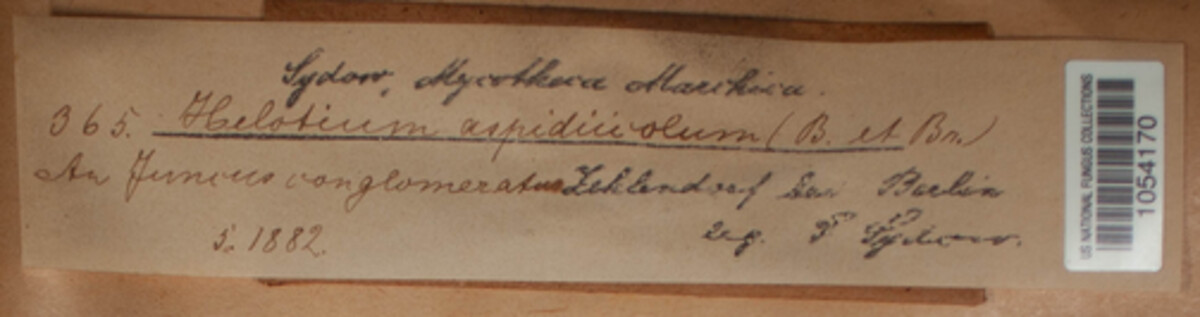 Sydow, Mycotheca Marchica.
365. Helotium aspidiicolum (B. et Br.)
An Juncus conglomeratus Zehlendorf bei Berlin
5. 1882. leg. P Sydow.
US NATIONAL FUNGUS COLLECTIONS
1054170